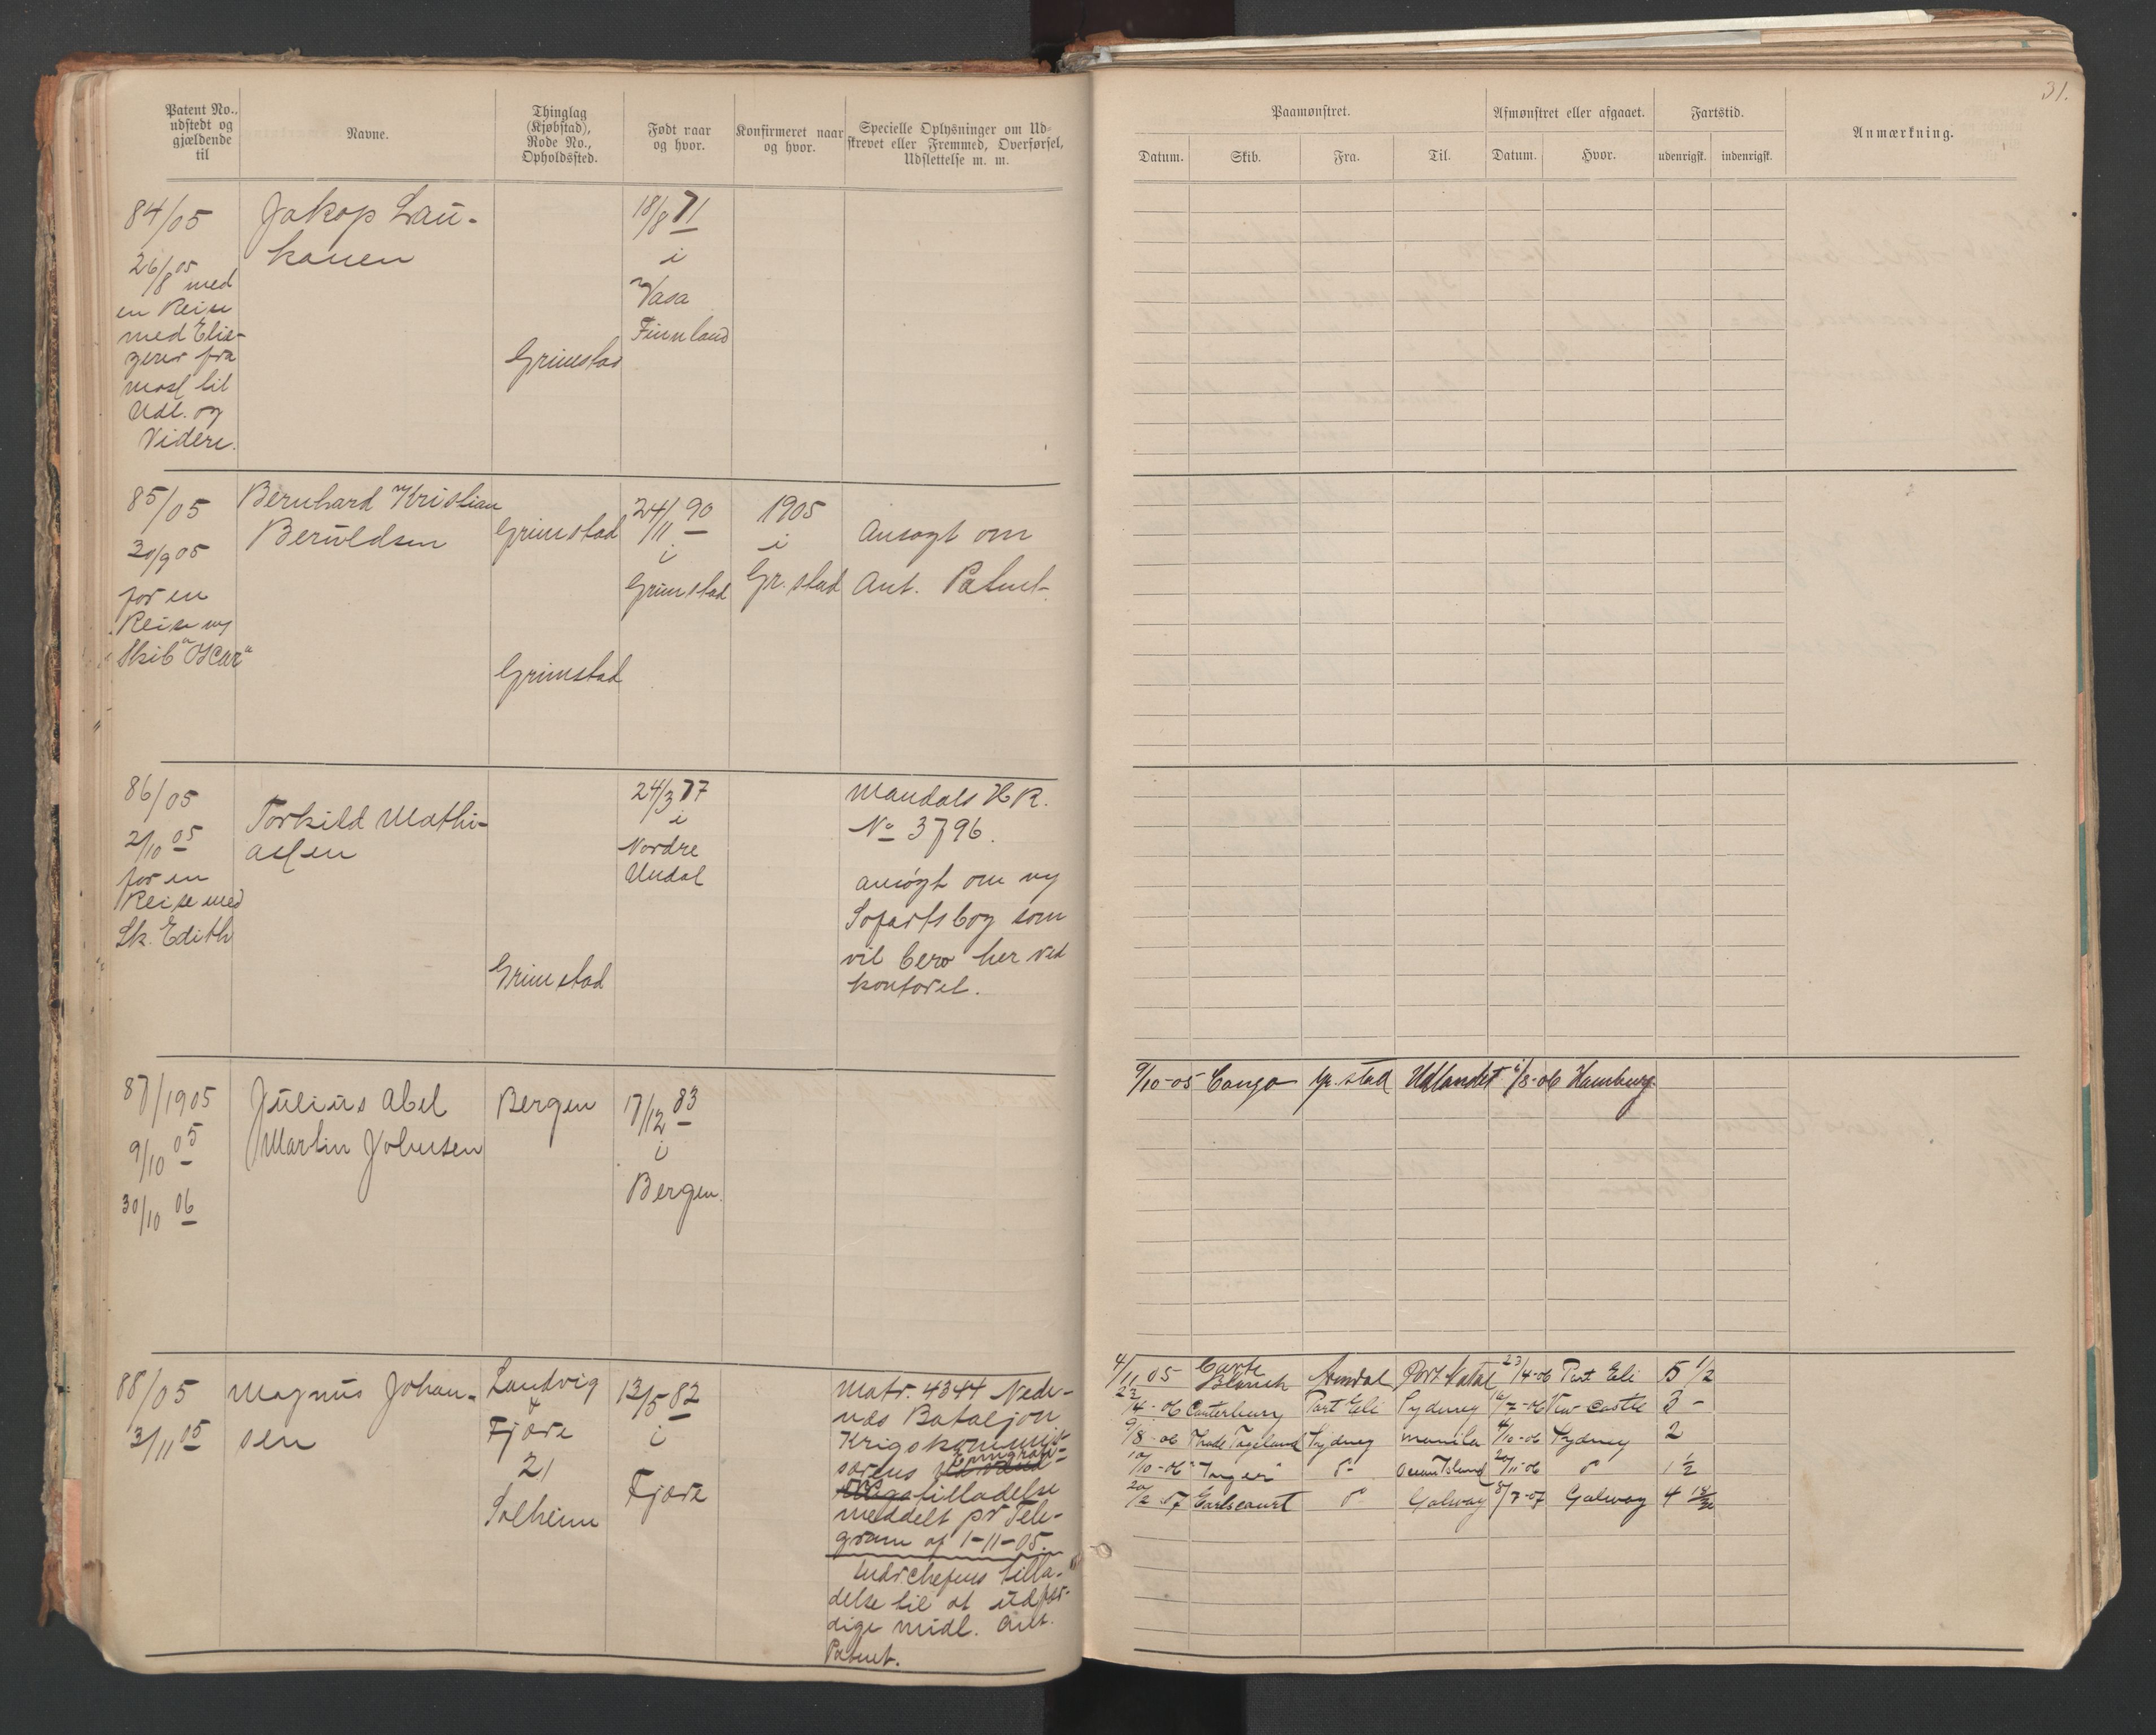 Patent No.,
udstedt og
gjældende
til
Navne.
Thinglag
(Kjøbstad),
Rode No.,
Opholdssted.
Født naar
og hvor.
Konfirmeret naar
og hvor.
Specielle Oplysninger om Ud-
skrevet eller Fremmed, Overførsel,
Udslettelse m. m.
84/05
26/8 05 med
en Reise
med Elie-
zerer fra
mosl til
Udl. og
Videre.
Jakop Lau-
kanen
Grimstad
18/8 71
i
Vasa
Finnland
85/05
30/9 05
for en
Reise m/
Skib "Oscar"
Bernhard Kristian
Beruldsen
Grimstad
Grimstad
24/11 90
i
Grimstad
1905
i
Gr. stad
Ansøgt om
Ant. Patent
86/05
2/10 05
for en
Reise med
Sk. Edith
Torkild Mathi-
assen
Grimstad
24/3 77
i
Nordre
Undal
Mandals H R.
No 3796.
ansøgt om ny
Søfartsbog som
vil bero her ved
kontoret.
87/1905
9/10 05
30/10 06
Julius Abel
Martin Johnsen
Bergen
17/12 83
i
Bergen.
88/05
3/11 05
Magnus Johan-
sen
Landvig
&
Fjære
21
Solheim
13/5 82
i
Fjære
Matr. 4344 Nede-
næs Bataljon
Krigskommis-
særens Emigrati-
tilladelse
meddelt pr Tele-
gram af 1-11-05.
Indrchefens tilla-
delse til at udfær-
dige midl. Ant.
Patent.
31.
Paamønstret.
Afmønstret eller afgaaet.
Fartstid.
Anmærkning.
Datum.
Skib.
Fra.
Til.
Datum.
Hvor.
udenrigsk.
indenrigsk.
9/10-05 Congo Gr. stad Udlandet 6/3-06 Hamburg.
4/11 05 Carte Blanch Arendal Port Natal 23/4-06 Port Eli 5 1/2
23/4-06 Canterbury Port Eli Sydney -06 New Castle 3 -
9/8-06 Sydney Manila 4/10-06 Sydney 2
10/10-06 "Tanger" Ocean Island 20/11-06 1 1/2
20/2 07 Earlscourt Galway 8/7-07 Galway 4 18/30